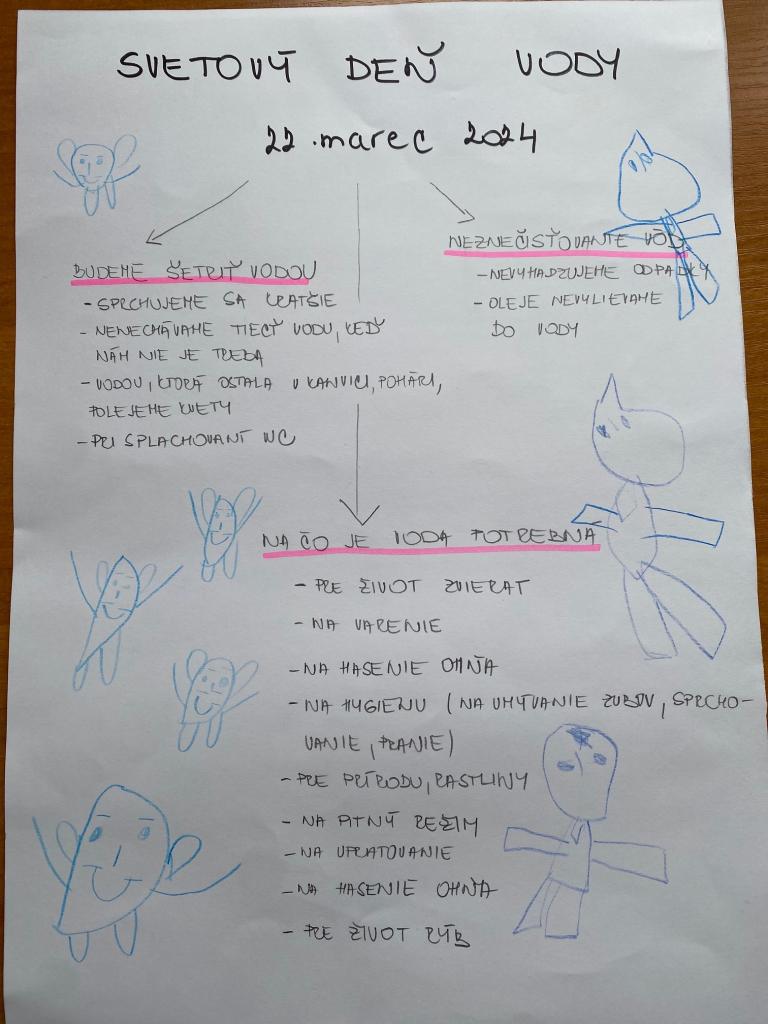 SVETOVÝ DEŇ VODY
22.marec 2024
BUDEME ŠETRIŤ VODOU
- SPRCHUJEME SA KRATŠIE
- NENECHÁVAME TIECŤ VODU, KEĎ
NÁM NIE JE TREBA
- VODOU, KTORÁ OSTALA V KANVICI, POHÁRI,
POLEJEME KVETY
- PRI SPLACHOVANÍ WC
NEZNEČISŤOVANIE VÔD
- NEVYHADZUJEME ODPADKY
- OLEJE NEVYLIEVAME
DO VODY
NA ČO JE VODA POTREBNÁ
- PRE ŽIVOT ZVIERAT
- NA VARENIE
- NA HASENIE OHŇA
- NA HYGIENU (NA UMÝVANIE ZUBOV, SPRCHO-
VANIE, PRANIE)
- PRE PRÍRODU, RASTLINY
- NA PITNÝ REŽIM
- NA UPRATOVANIE
- NA HASENIE OHŇA
- PRE ŽIVOT RÝB